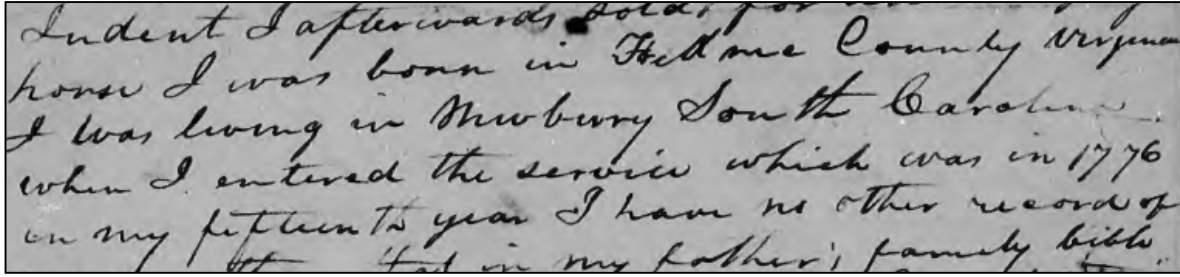 Indent I afterwards sold, for
horse I was born in County Virginia
I was living in Newbury South Carolina
when I entered the service which was in 1776
in my fifteenth year I have no other record of
in my father's family bible